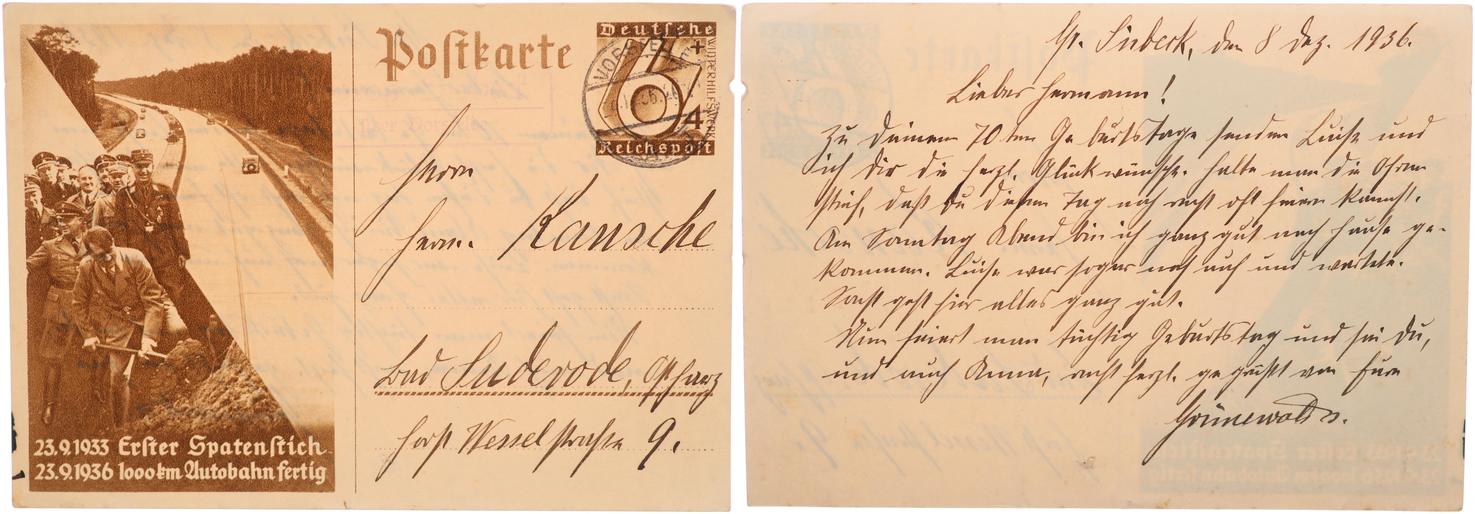 Postkarte
Deutsche
Reichspost
6+4
WINTERHILFSWERK
23.9.1933 Erster Spatenstich
23.9.1936 1000km Autobahn fertig
Herrn
Herm. Kansche
Bad Suderode, Ostharz
Horst Wesselstraße 9.
Gr. Lübeck, den 8 Dez. 1936.
Lieber Hermann!
Zu Deinem 70ten Geburtstage senden Luise und
ich Dir die herzl. Glückwünsche. Halte man die Ohren
steif, daß Du diesen Tag noch recht oft feiern kannst.
Am Sonntag Abend bin ich ganz gut nach Hause ge-
kommen. Luise war sogar noch auf und wartete.
Sonst geht hier alles ganz gut.
Nun feiert man tüchtig Geburtstag und sei Du,
und auch Anna, recht herzl. gegrüßt von Eure
Grünewalds.